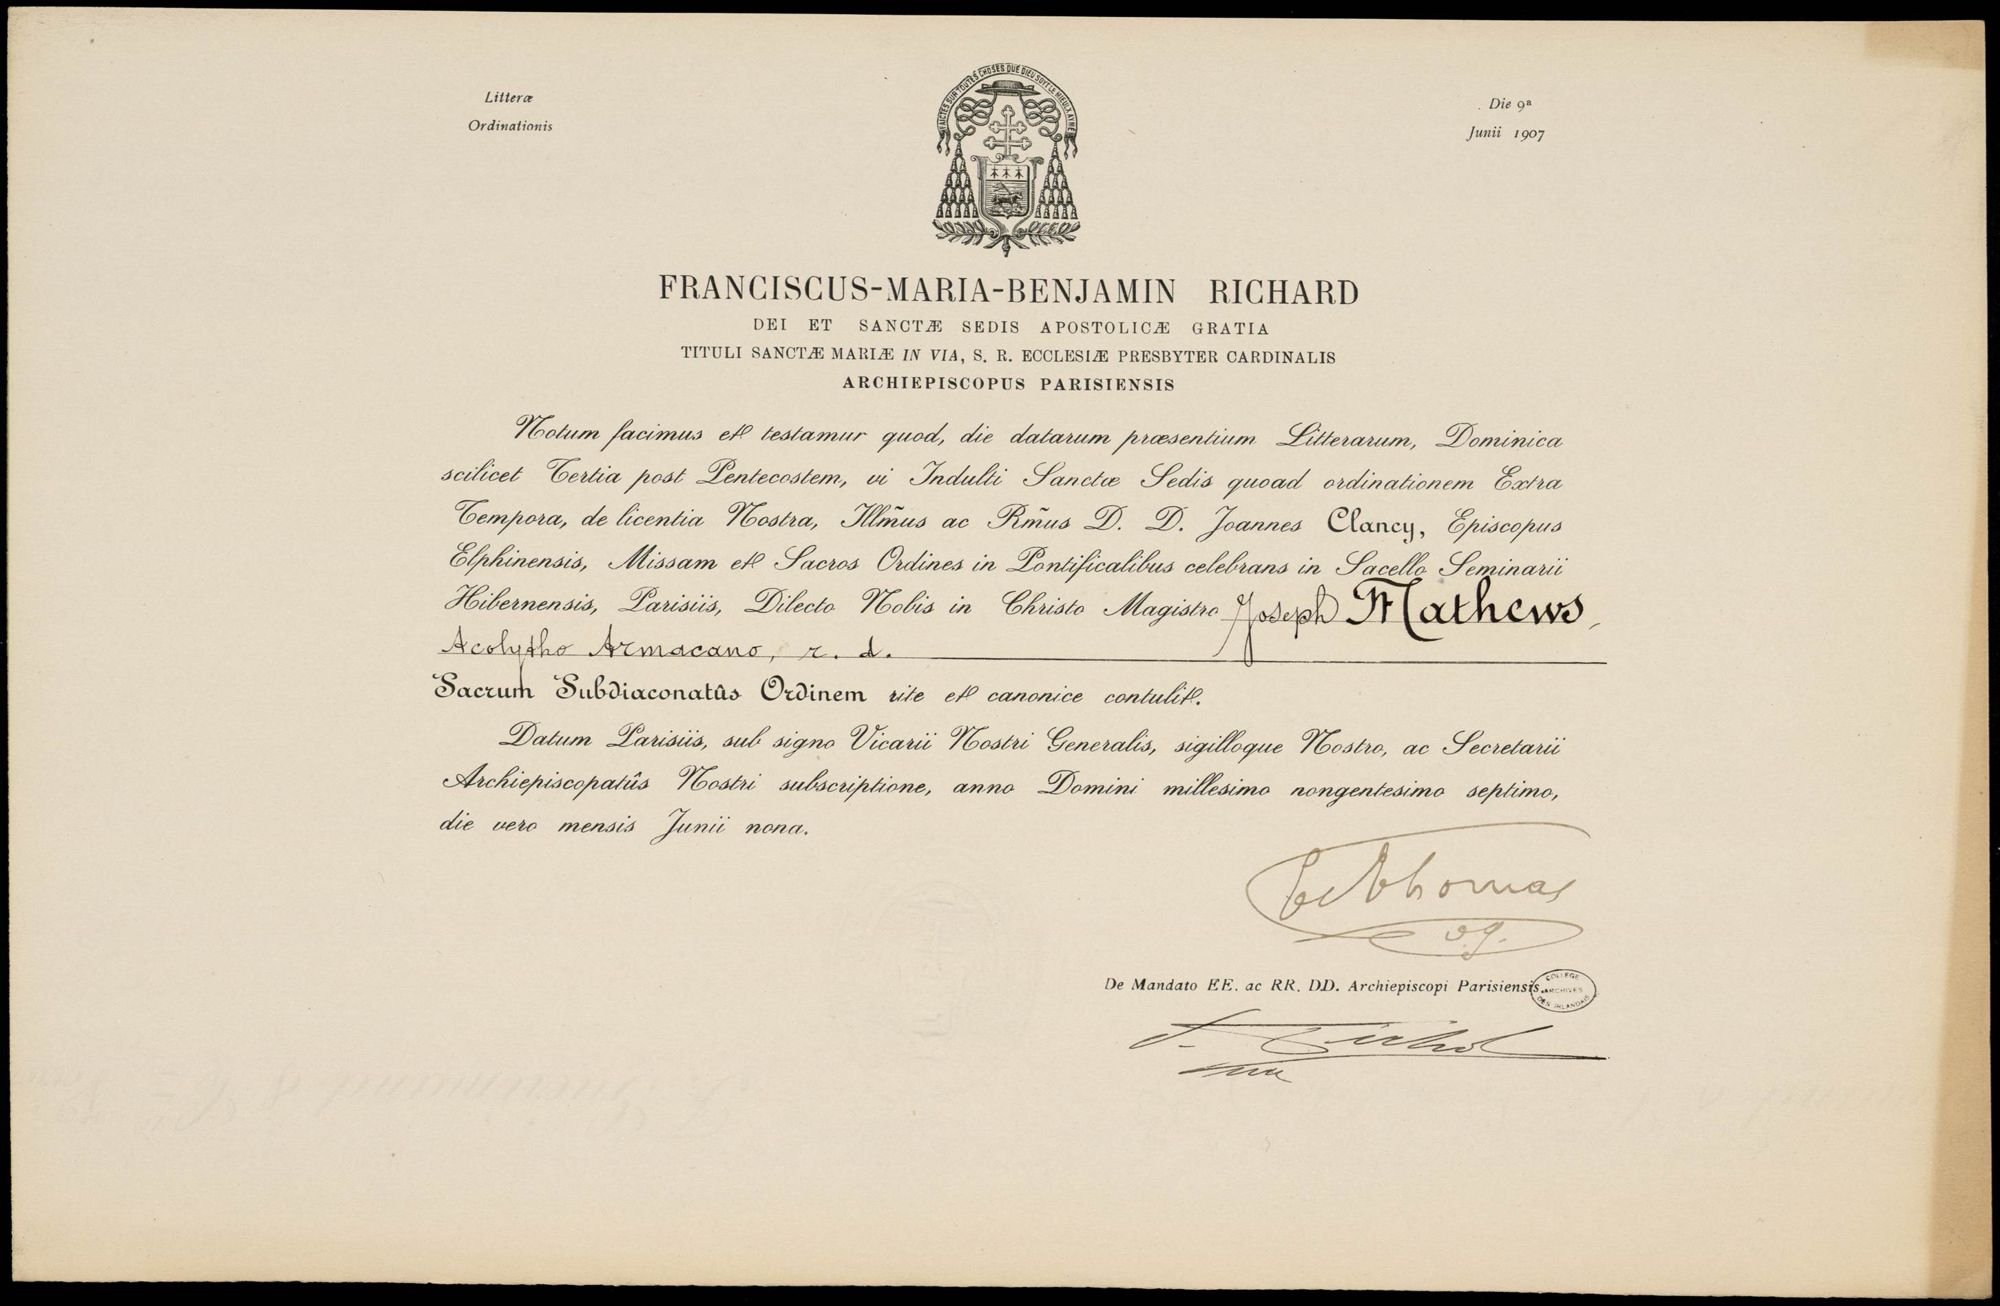 FAICTES SUR TOUTES CHOSES QUE DIEU SOYT LE MIEULX AYMÉ
Litteræ
Ordinationis
Die 9ª
Junii 1907
FRANCISCUS-MARIA-BENJAMIN RICHARD
DEI ET SANCTÆ SEDIS APOSTOLICÆ GRATIA
TITULI SANCTÆ MARIÆ IN VIA, S. R. ECCLESIÆ PRESBYTER CARDINALIS
ARCHIEPISCOPUS PARISIENSIS
Notum facimus et testamur quod, die datarum præsentium Litterarum, Dominica
scilicet Tertia post Pentecostem, vi Indulti Sanctæ Sedis quoad ordinationem Extra
Tempora, de licentia Nostra, Illm̃us ac Rm̃us D. D. Joannes Clancy, Episcopus
Elphinensis, Missam et Sacros Ordines in Pontificalibus celebrans in Sacello Seminarii
Hibernensis, Parisiis, Dilecto Nobis in Christo Magistro Joseph Mathews,
Acolytho Armacano, r. d.
Sacrum Subdiaconatûs Ordinem rite et canonice contulit.
Datum Parisiis, sub signo Vicarii Nostri Generalis, sigilloque Nostro, ac Secretarii
Archiepiscopatûs Nostri subscriptione, anno Domini millesimo nongentesimo septimo,
die vero mensis Junii nona.
Thomas
v.g.
De Mandato EE. ac RR. DD. Archiepiscopi Parisiensis.
COLLEGE
ARCHIVES
DES IRLANDAIS